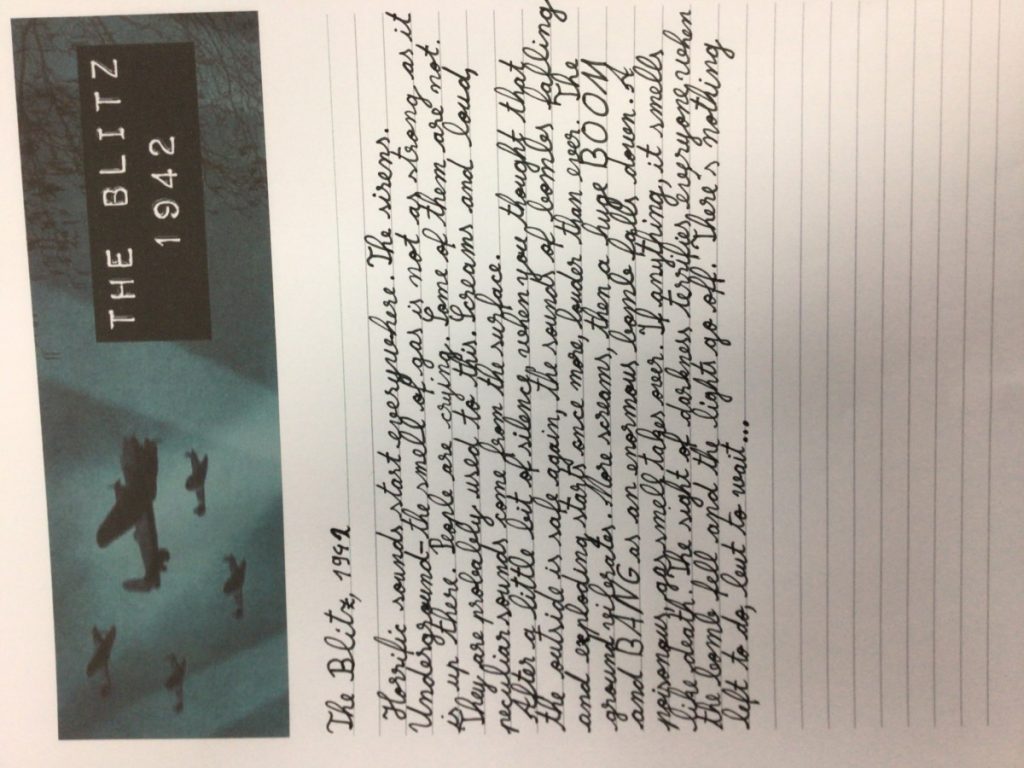 THE BLITZ
1942
The Blitz, 1942
Horrific sounds start everywhere. The sirens.
Underground - the smell of gas is not as strong as it
is up there. People are crying. Some of them are not.
They are probably used to this. Screams and loud,
peculiar sounds come from the surface.
After a little bit of silence, when you thought that
the outside is safe again, the sound of bombs falling
and exploding starts once more, louder than ever. The
ground vibrates. More screams, then a huge BOOM
and BANG as an enormous bomb falls down. A
poisonous, off smell takes over. If anything, it smells
like death. The sight of darkness terrifies everyone when
the bomb fell and the lights go off. There's nothing
left to do, but to wait...